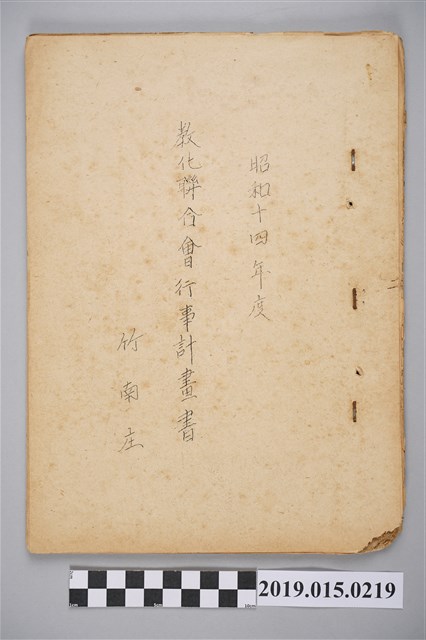 昭和十四年度
教化聯合會行事計畫書
竹南庄
2019.015.0219